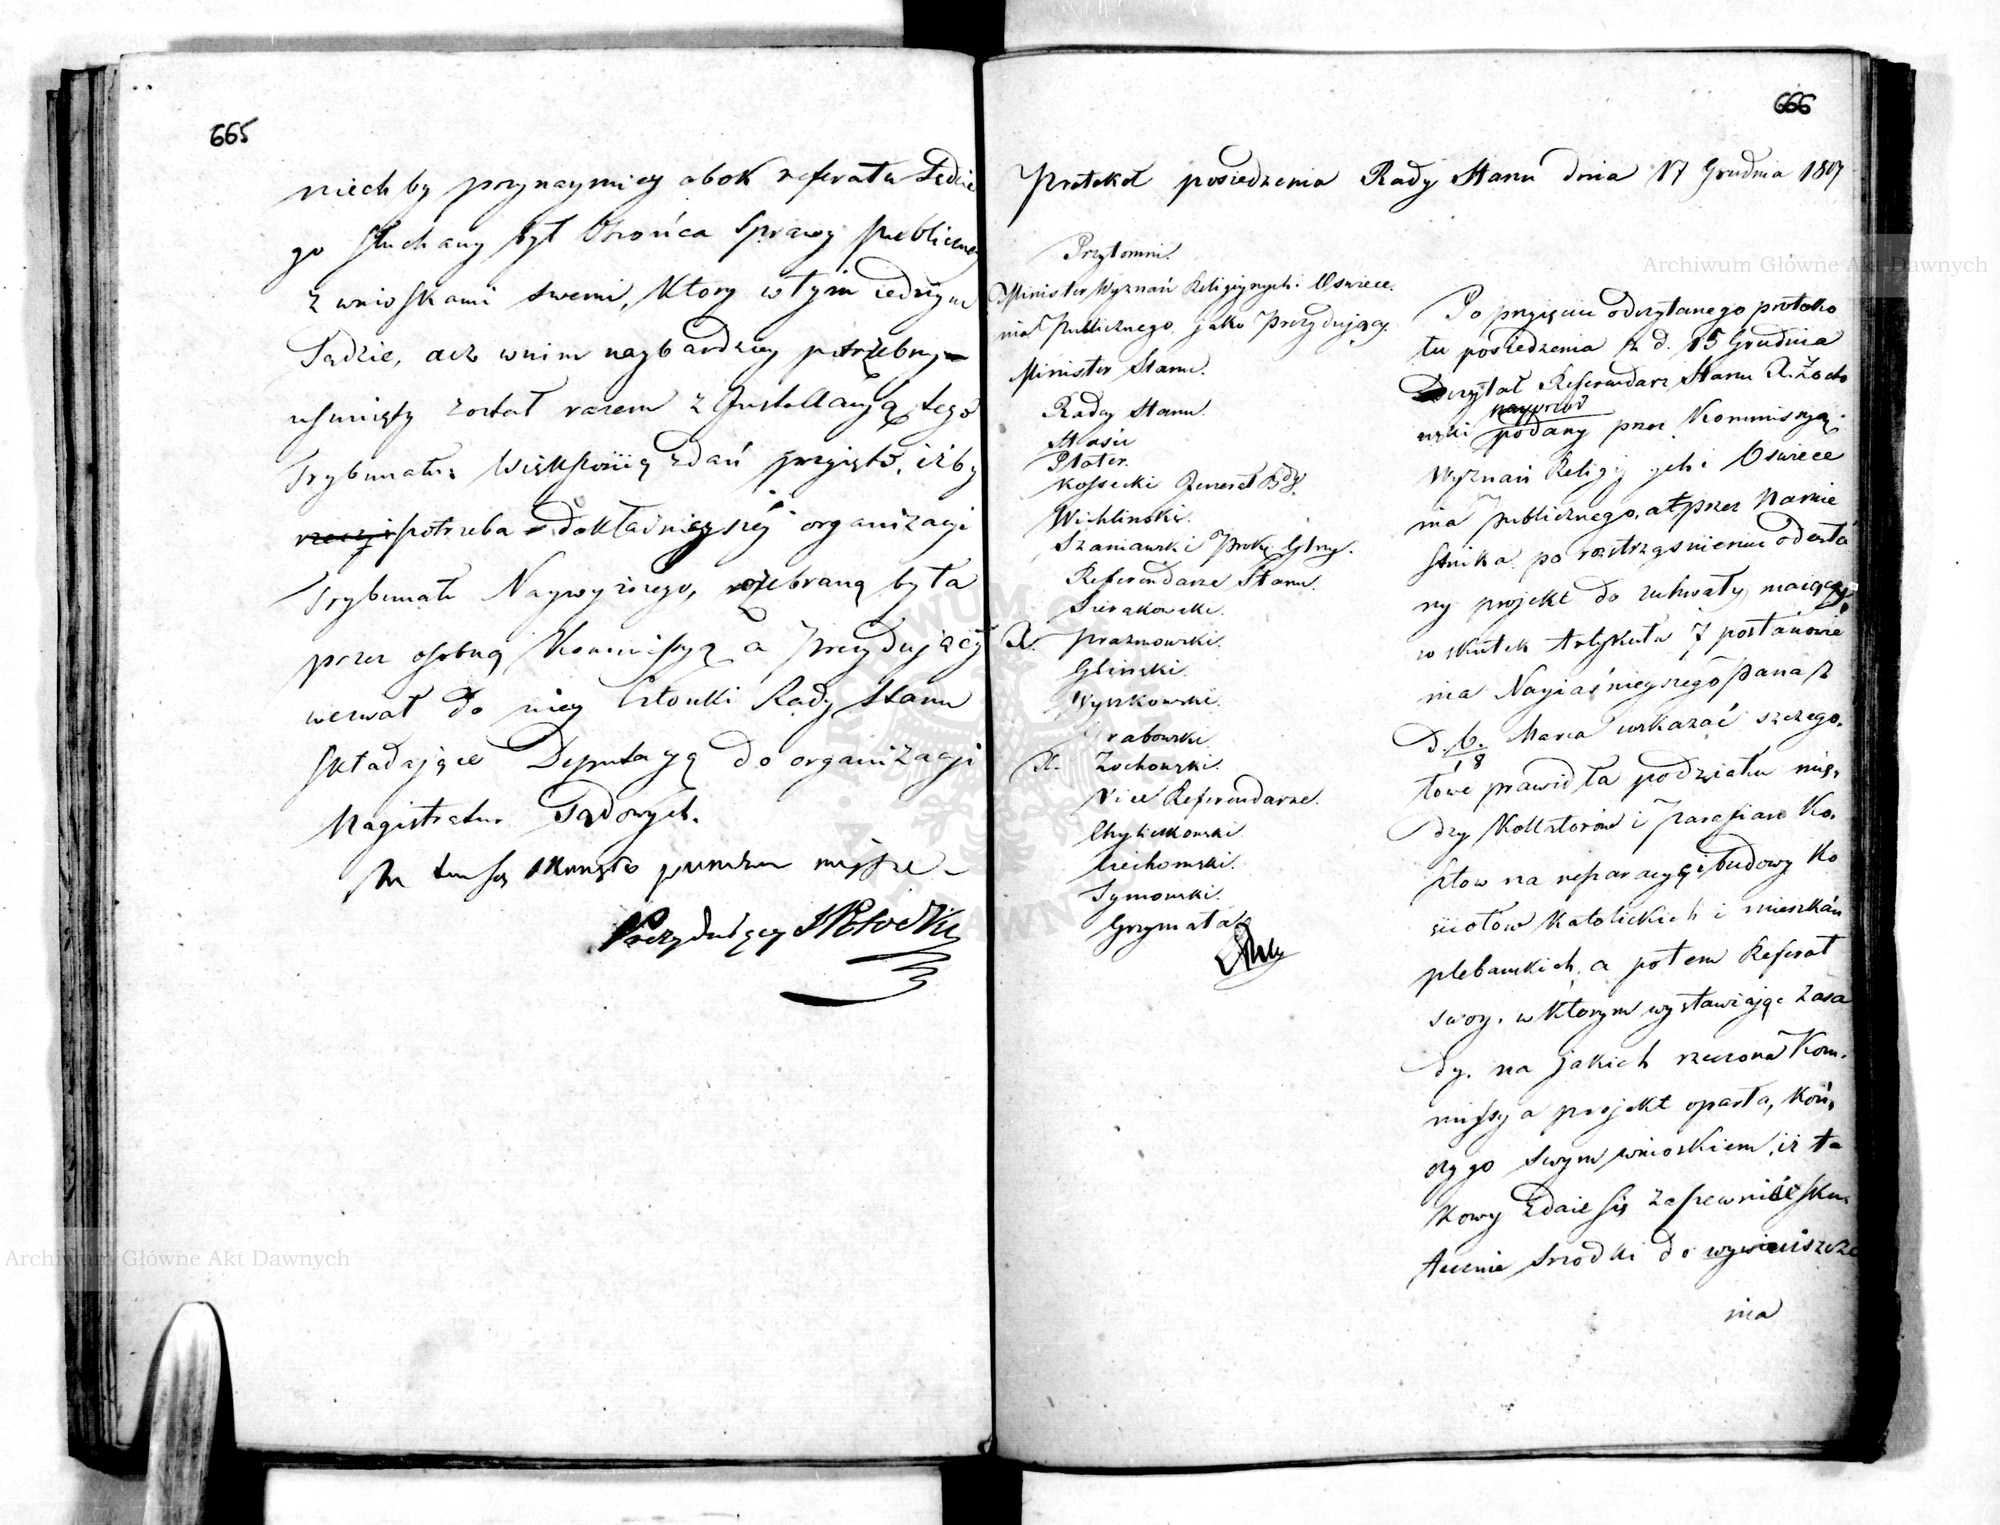 665
niechby przynaymniey obok referatu Sędzie
go słuchany był Obrońca Sprawy publiczney
z wnioskami swemi, który w tym iedynym
Sądzie, acz w nim naybardziey potrzebny
usunięty został razem z Installacyą tego
Trybunału. Większością zdań przyięto, iżby
potrzeba dokładnieyszey organizacji
Trybunału Naywyższego, rozebraną była
przez osobną Kommissyą a Prezydujący
wezwał do niey Członki Rady Stanu
składające Deputacyą do organizacji
Magistratur Sądowych.
Na tem się skończyło posiedzenie ninieysze
Prezydujący S Potocki
666
Protokoł posiedzenia Rady Stanu dnia 17 Grudnia 1817
Przytomni.
Minister Wyznań Religijnych i Oświece
nia Publicznego, jako Prezydujący
Minister Stanu.
Radcy Stanu.
Stasic
Plater.
Kossecki Generał Bdy.
Wichlinski.
Szaniawski Prok. Glny.
Referendarze Stanu.
Sierakowski.
X. Prażmowski.
Gliński.
Wyszkowski.
Grabowski.
X. Zochowski.
Vice Referendarze.
Chylickowski.
Ciechomski.
Tymowski.
Grzymała
Po przyięciu odczytanego protoko
łu posiedzenia z d. 15 Grudnia
Czytał Referendarz Stanu X. Żocho
wski nayprzód podany przez Kommissyą
Wyznań Religijnych i Oświece
nia Publicznego, a przez Namie
stnika po roztrząśnieniu odesła
ny projekt do uchwały, maiącey
w skutek Artykułu 7 postanowie
nia Nayiaśnieyszego Pana z
D. 6/18 Marca wskazać szczegó,
łowe prawidła podziału mię,
dzy Kollatorów i Parafian Ko,
sztow na reparacyę i budowy Ko
sciołów Katolickich i mieszkań
plebańskich, a potem Referat
swoy, w którym wystawiając zasa
dy, na jakich rzeczona Kom,
missya projekt oparła, koń,
czy go swym wnioskiem, iż ta
kowy zdaie się zapewniać sku,
teczne srzodki do wyniszcze
nia
Archiwum Główne Akt Dawnych
Archiwum Główne Akt Dawnych